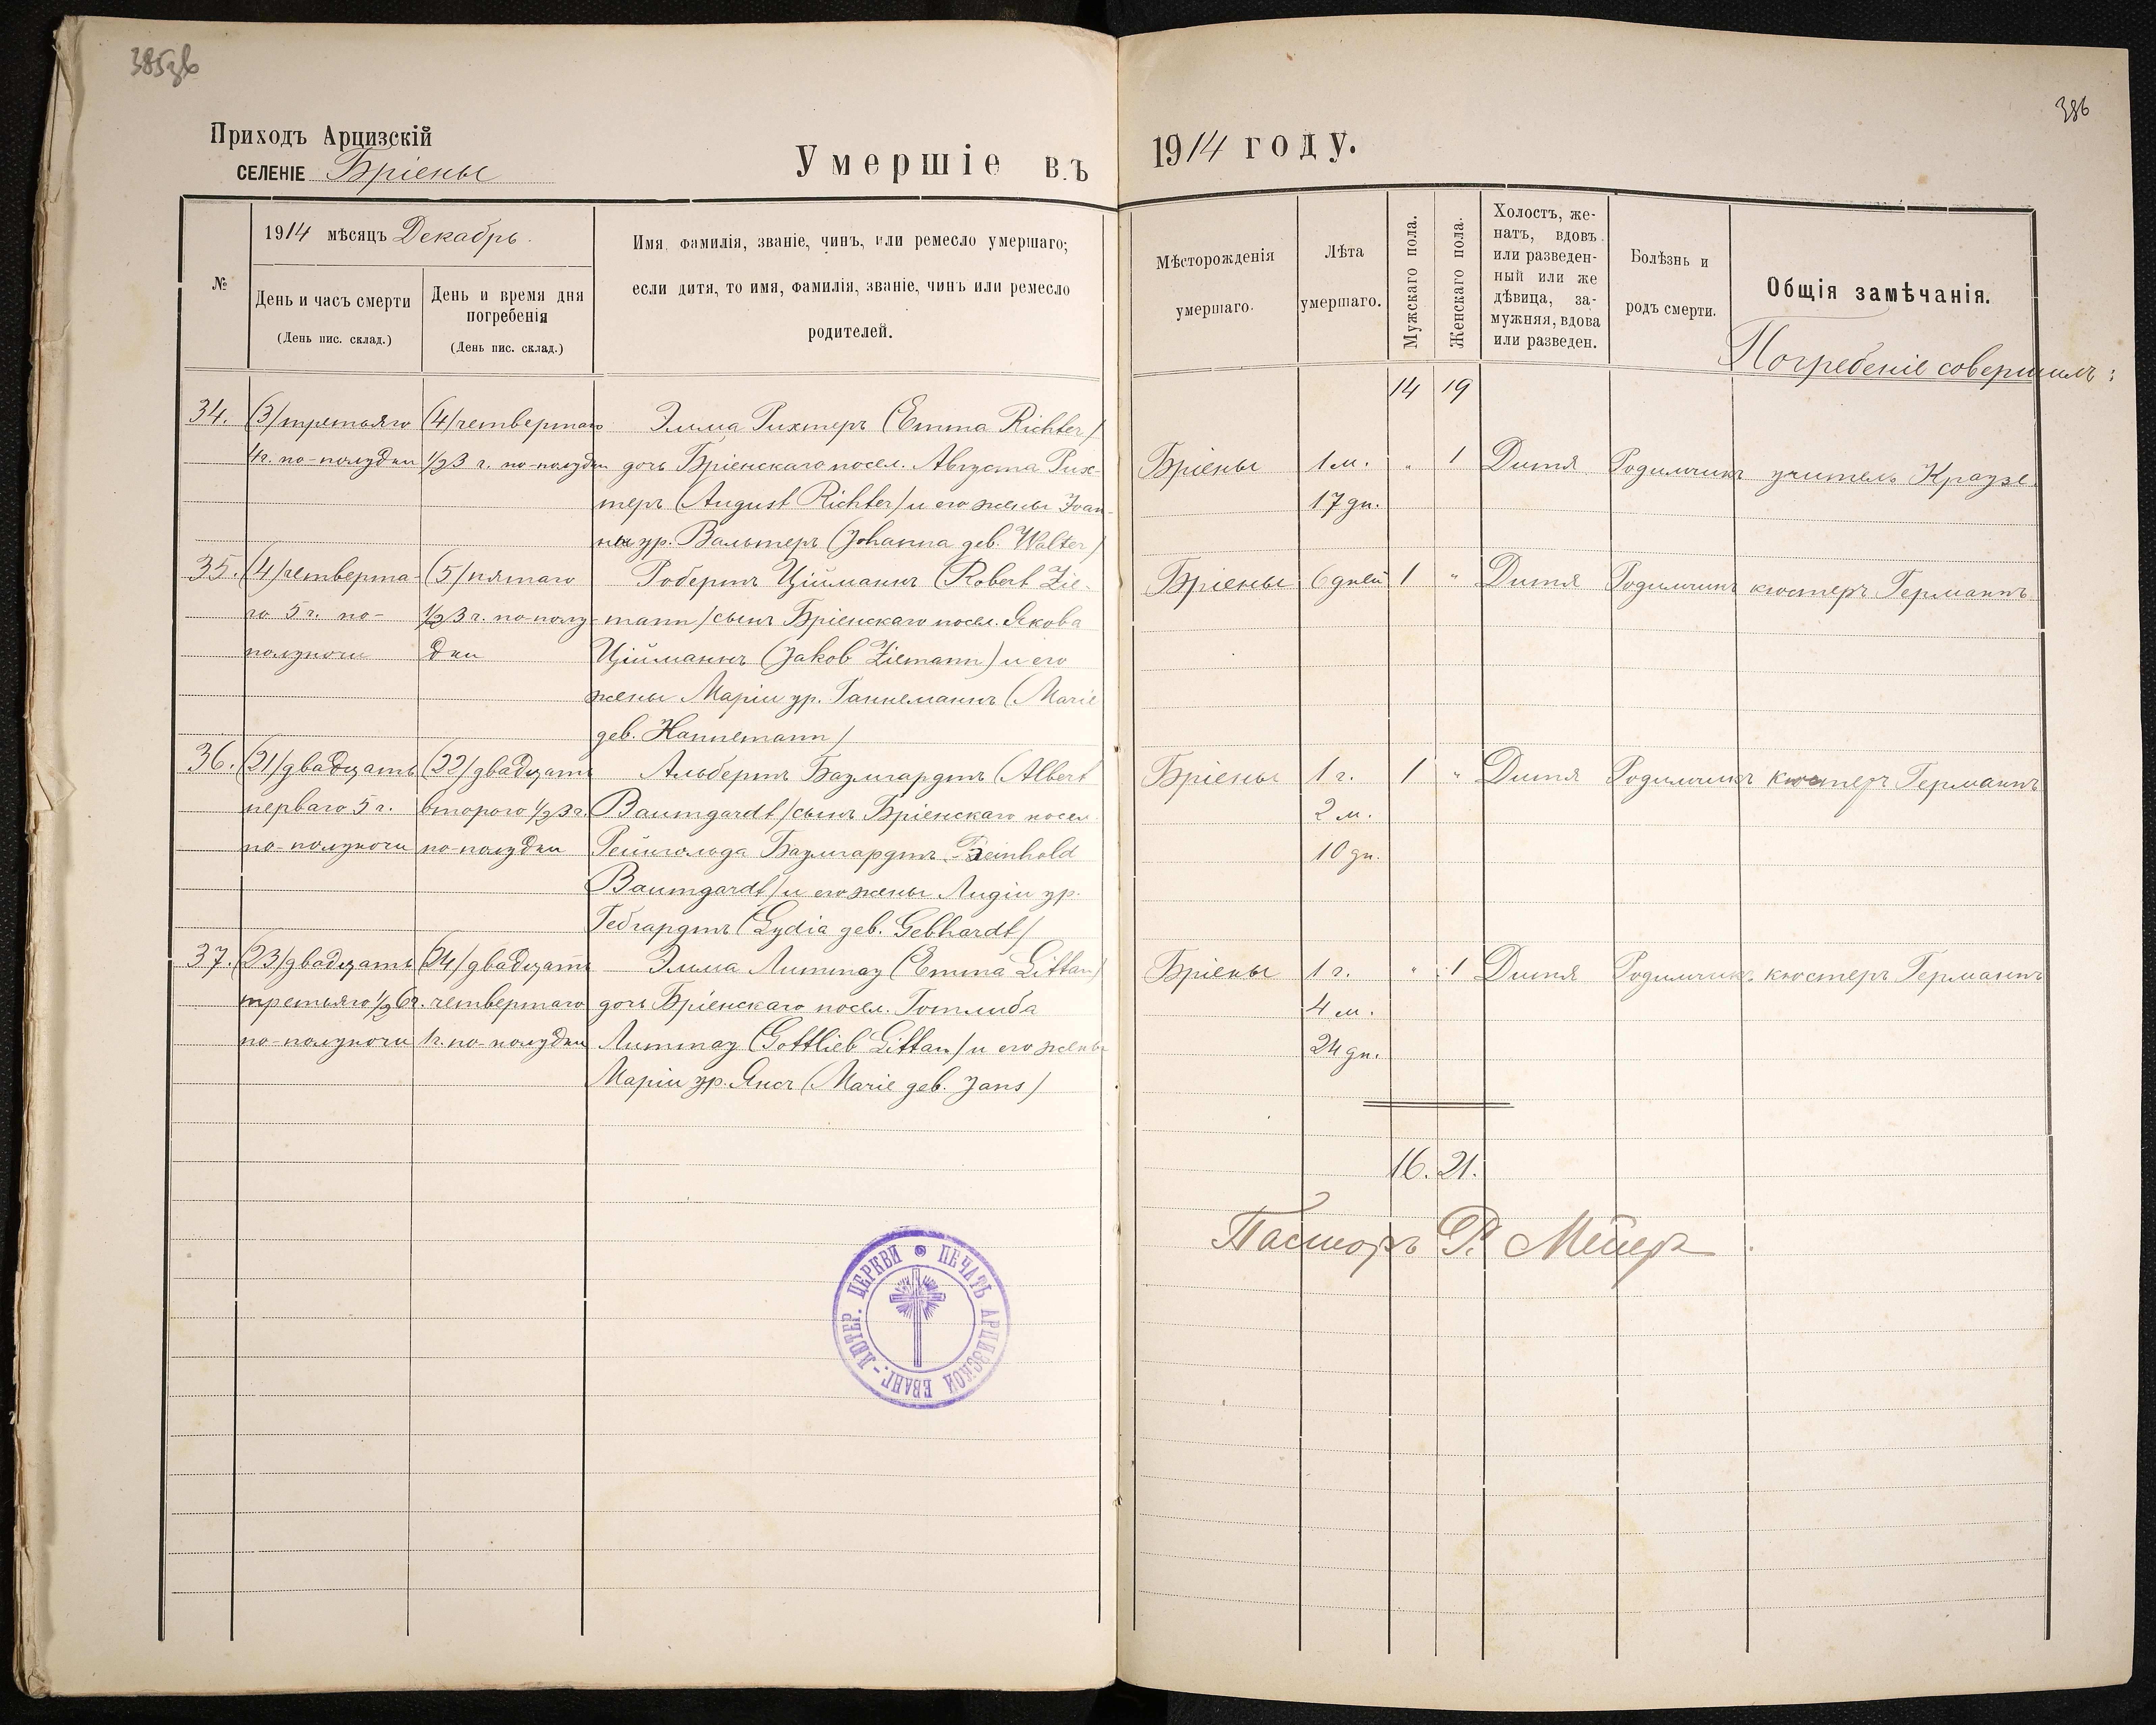 385зв
Приходъ Арцизскій
СЕЛЕНІЕ Бріены
Умершіе въ
№
1914 мѣсяцъ Декабрь.
День и часъ смерти
(День пис. склад.)
День и время дня
погребенія
(День пис. склад.)
Имя, фамилія, званіе, чинъ, или ремесло умершаго;
если дитя, то имя, фамилія, званіе, чинъ или ремесло
родителей.
34. (3/третьяго (4/четвертаго Эмма Рихтеръ (Emma Richter/
4ч. по-полудни ½3 ч. по-полудни дочь Бріенскаго посел. Августа Рих-
теръ (August Richter/ и его жены Іоан-
ны ур. Вальтеръ (Johanna geb. Walter/
35. (4/четверта- (5/пятаго Робертъ Ційманнъ (Robert Zie-
го 5 ч. по- ½3 ч. по-полу- mann/ сынъ Бріенскаго посел. Якова
полуночи дни Ційманнъ (Jakob Ziemann) и его
жены Маріи ур. Ганнеманнъ (Marie
geb. Hannemann/
36. (21/двадцать (22/двадцать Альбертъ Баумгардтъ (Albert
перваго 5 ч. второго ½3 ч. Baumgardt/ сынъ Бріенскаго посел.
по-полуночи по-полудни Рейнгольда Баумгардтъ (Reinhold
Baumgardt/ и его жены Лидіи ур.
Гебгардтъ (Lydia geb. Gebhardt/
37. (23/двадцать (24/двадцать Эмма Литтау (Emma Littau)
третьяго ½6 ч. четвертаго дочь Бріенскаго посел. Готлиба
по-полуночи 1ч. по-полудни Литтау (Gottlieb Littau/ и его жены
Маріи ур. Янсъ (Marie geb. Jans/
ПЕЧАТЬ АРЦИЗСКОЙ ЕВАНГ.-ЛЮТЕР. ЦЕРКВИ
386
1914 году.
Мѣсторожденія
умершаго.
Лѣта
умершаго.
Мужскаго пола.
Женскаго пола.
Холостъ, же-
натъ, вдовъ
или разведен-
ный или же
дѣвица, за-
мужняя, вдова
или разведен.
Болѣзнь и
родъ смерти.
Общія замѣчанія.
Погребеніе совершилъ:
14 19
Бріены 1 м. " 1 Дитя Родимчикъ учитель Краузе.
17 дн.
Бріены 6 дней 1 " Дитя Родимчикъ кюстеръ Германнъ
Бріены 1 г. 1 " Дитя Родимчикъ кюстеръ Германнъ
2 м.
10 дн.
Бріены 1 г. " 1 Дитя Родимчикъ кюстеръ Германнъ
4 м.
24 дн.
16. 21.
Пасторъ Р. Мейеръ